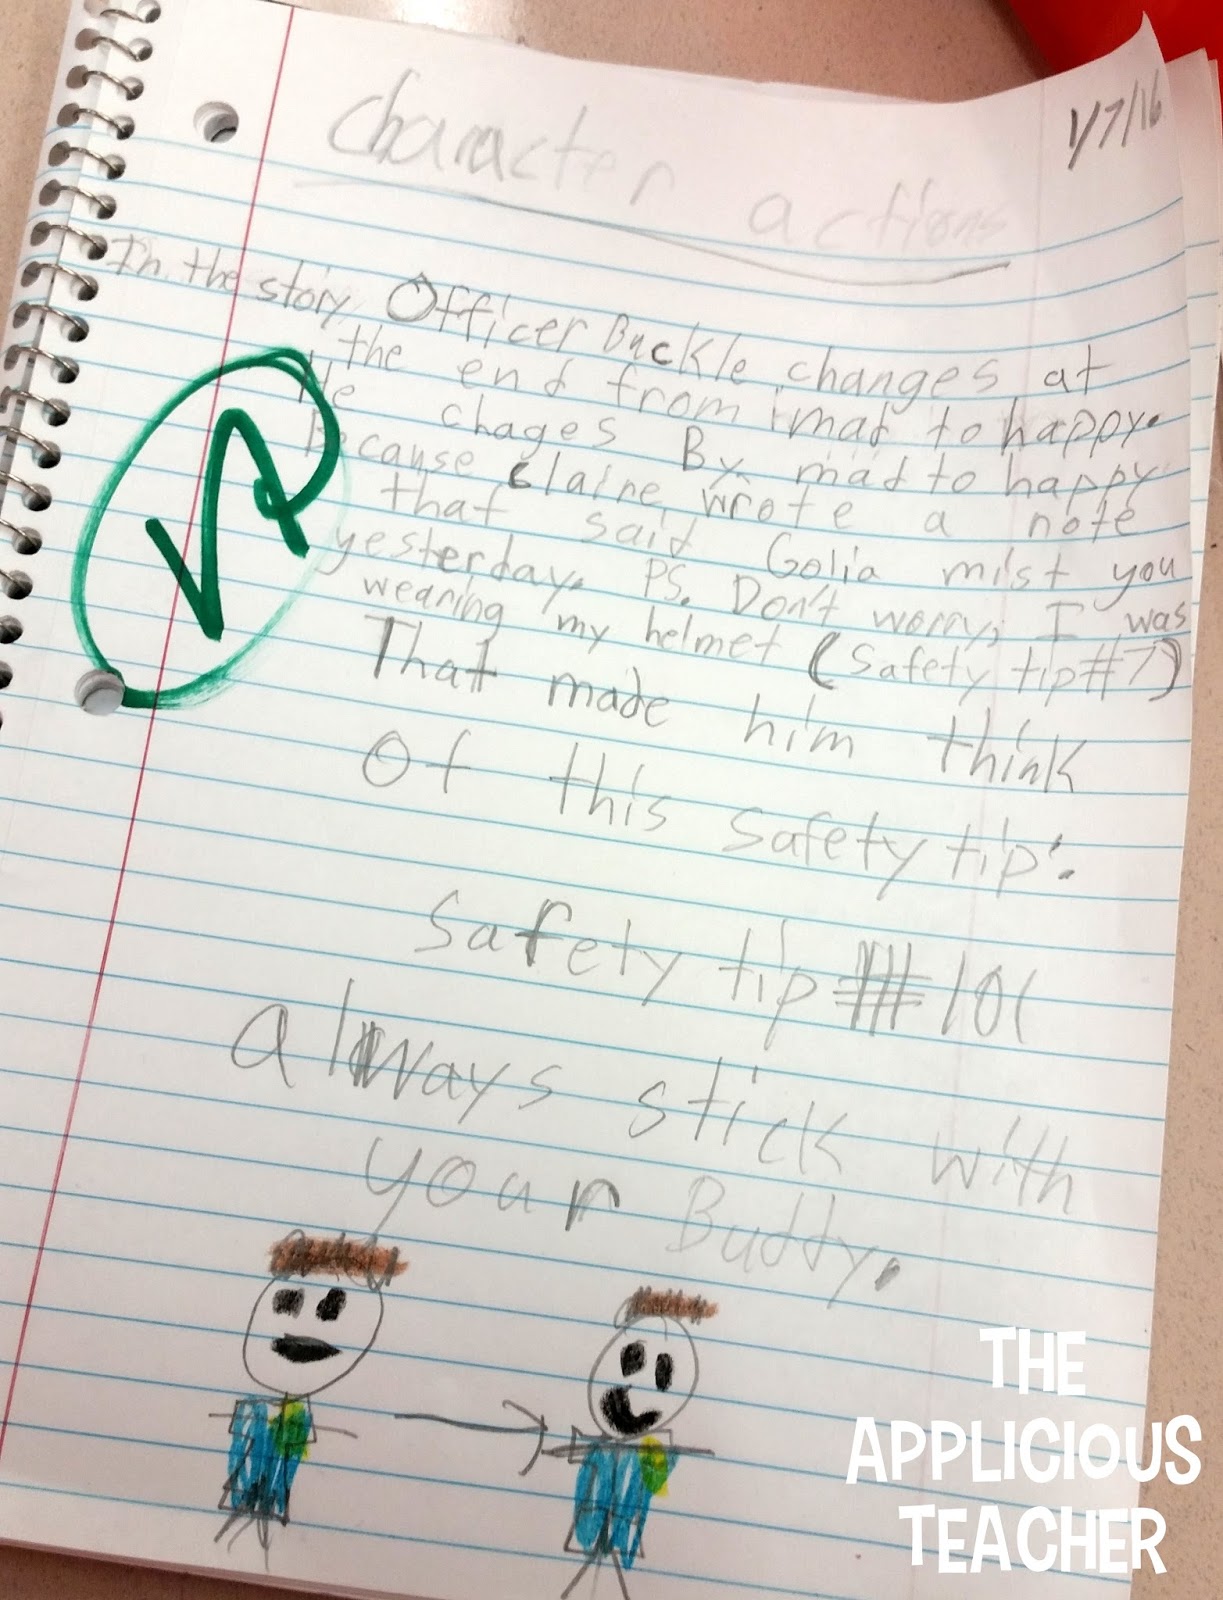 1/7/16
Character actions
In the story, Officer Buckle changes at
the end from mad to happy.
He chages By mad to happy
Because Claire wrote a note
that said Golia mist you
yesterday. PS. Don't worry, I was
wearing my helmet (Safety tip #7)
That made him think
Of this safety tip:
Safety tip #101
always stick with
your Buddy.
THE
APPLICIOUS
TEACHER